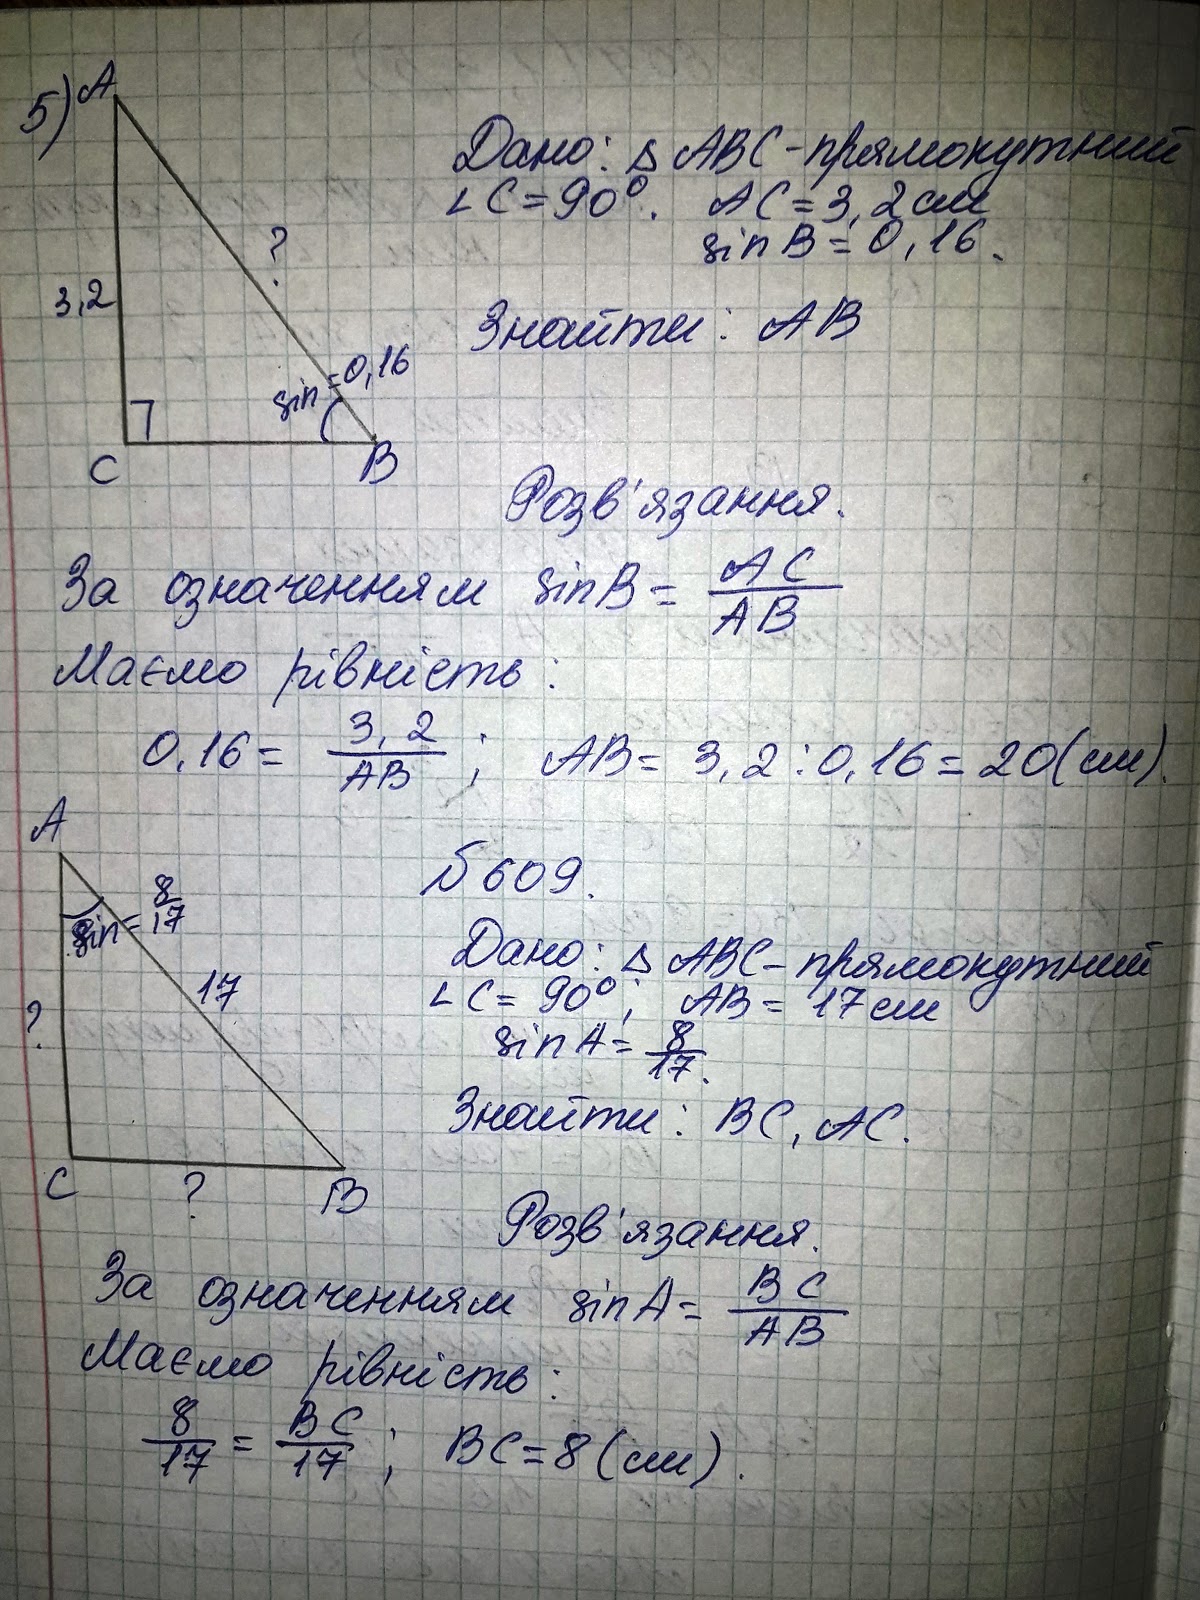 5) A
Дано: Δ ABC - прямокутний
∠C = 90°. AC = 3,2 см
sin B = 0,16.
?
3,2
Знайти: AB
sin = 0,16
C B
Розв'язання.
За означенням sin B = AC/AB
Маємо рівність:
0,16 = 3,2/AB ; AB = 3,2 : 0,16 = 20 (см).
A
№ 609.
sin = 8/17
Дано: Δ ABC - прямокутний
17
∠C = 90°; AB = 17 см
?
sin A = 8/17.
Знайти: BC, AC.
C ? B
Розв'язання.
За означенням sin A = BC/AB
Маємо рівність:
8/17 = BC/17 ; BC = 8 (см).